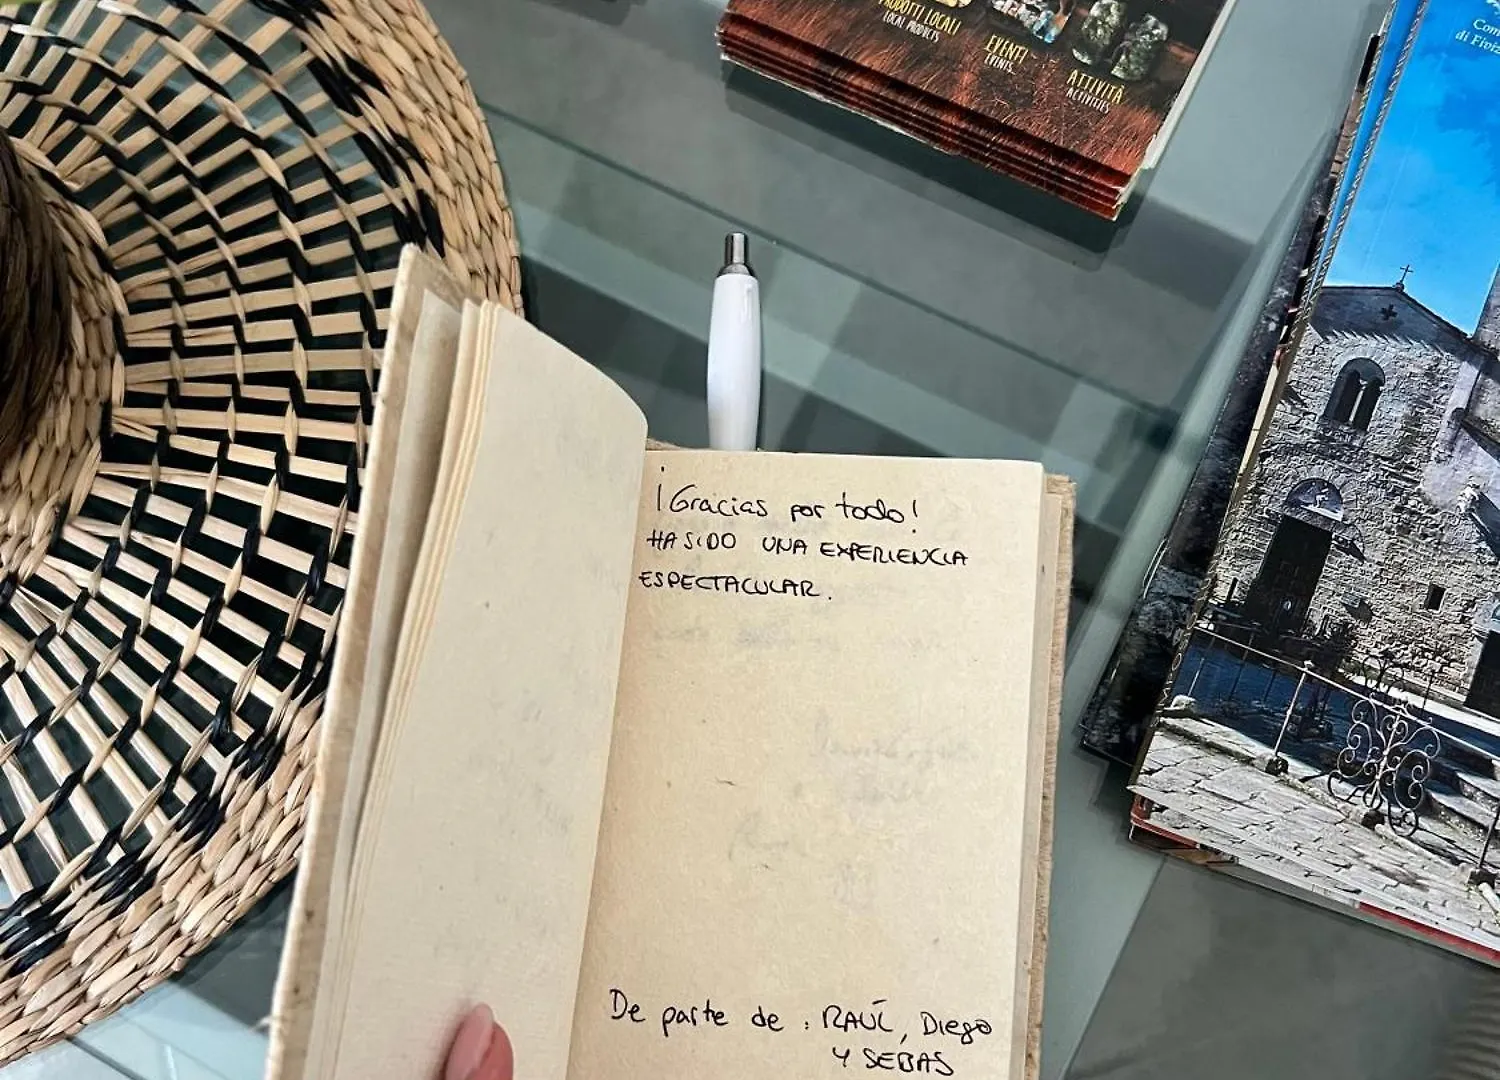 PRODOTTI LOCALI
LOCAL PRODUCTS
EVENTI
EVENTS
ATTIVITÀ
ACTIVITIES
¡Gracias por todo!
HA SIDO UNA EXPERIENCIA
ESPECTACULAR.
De parte de : RAÚL, Diego
Y SEBAS